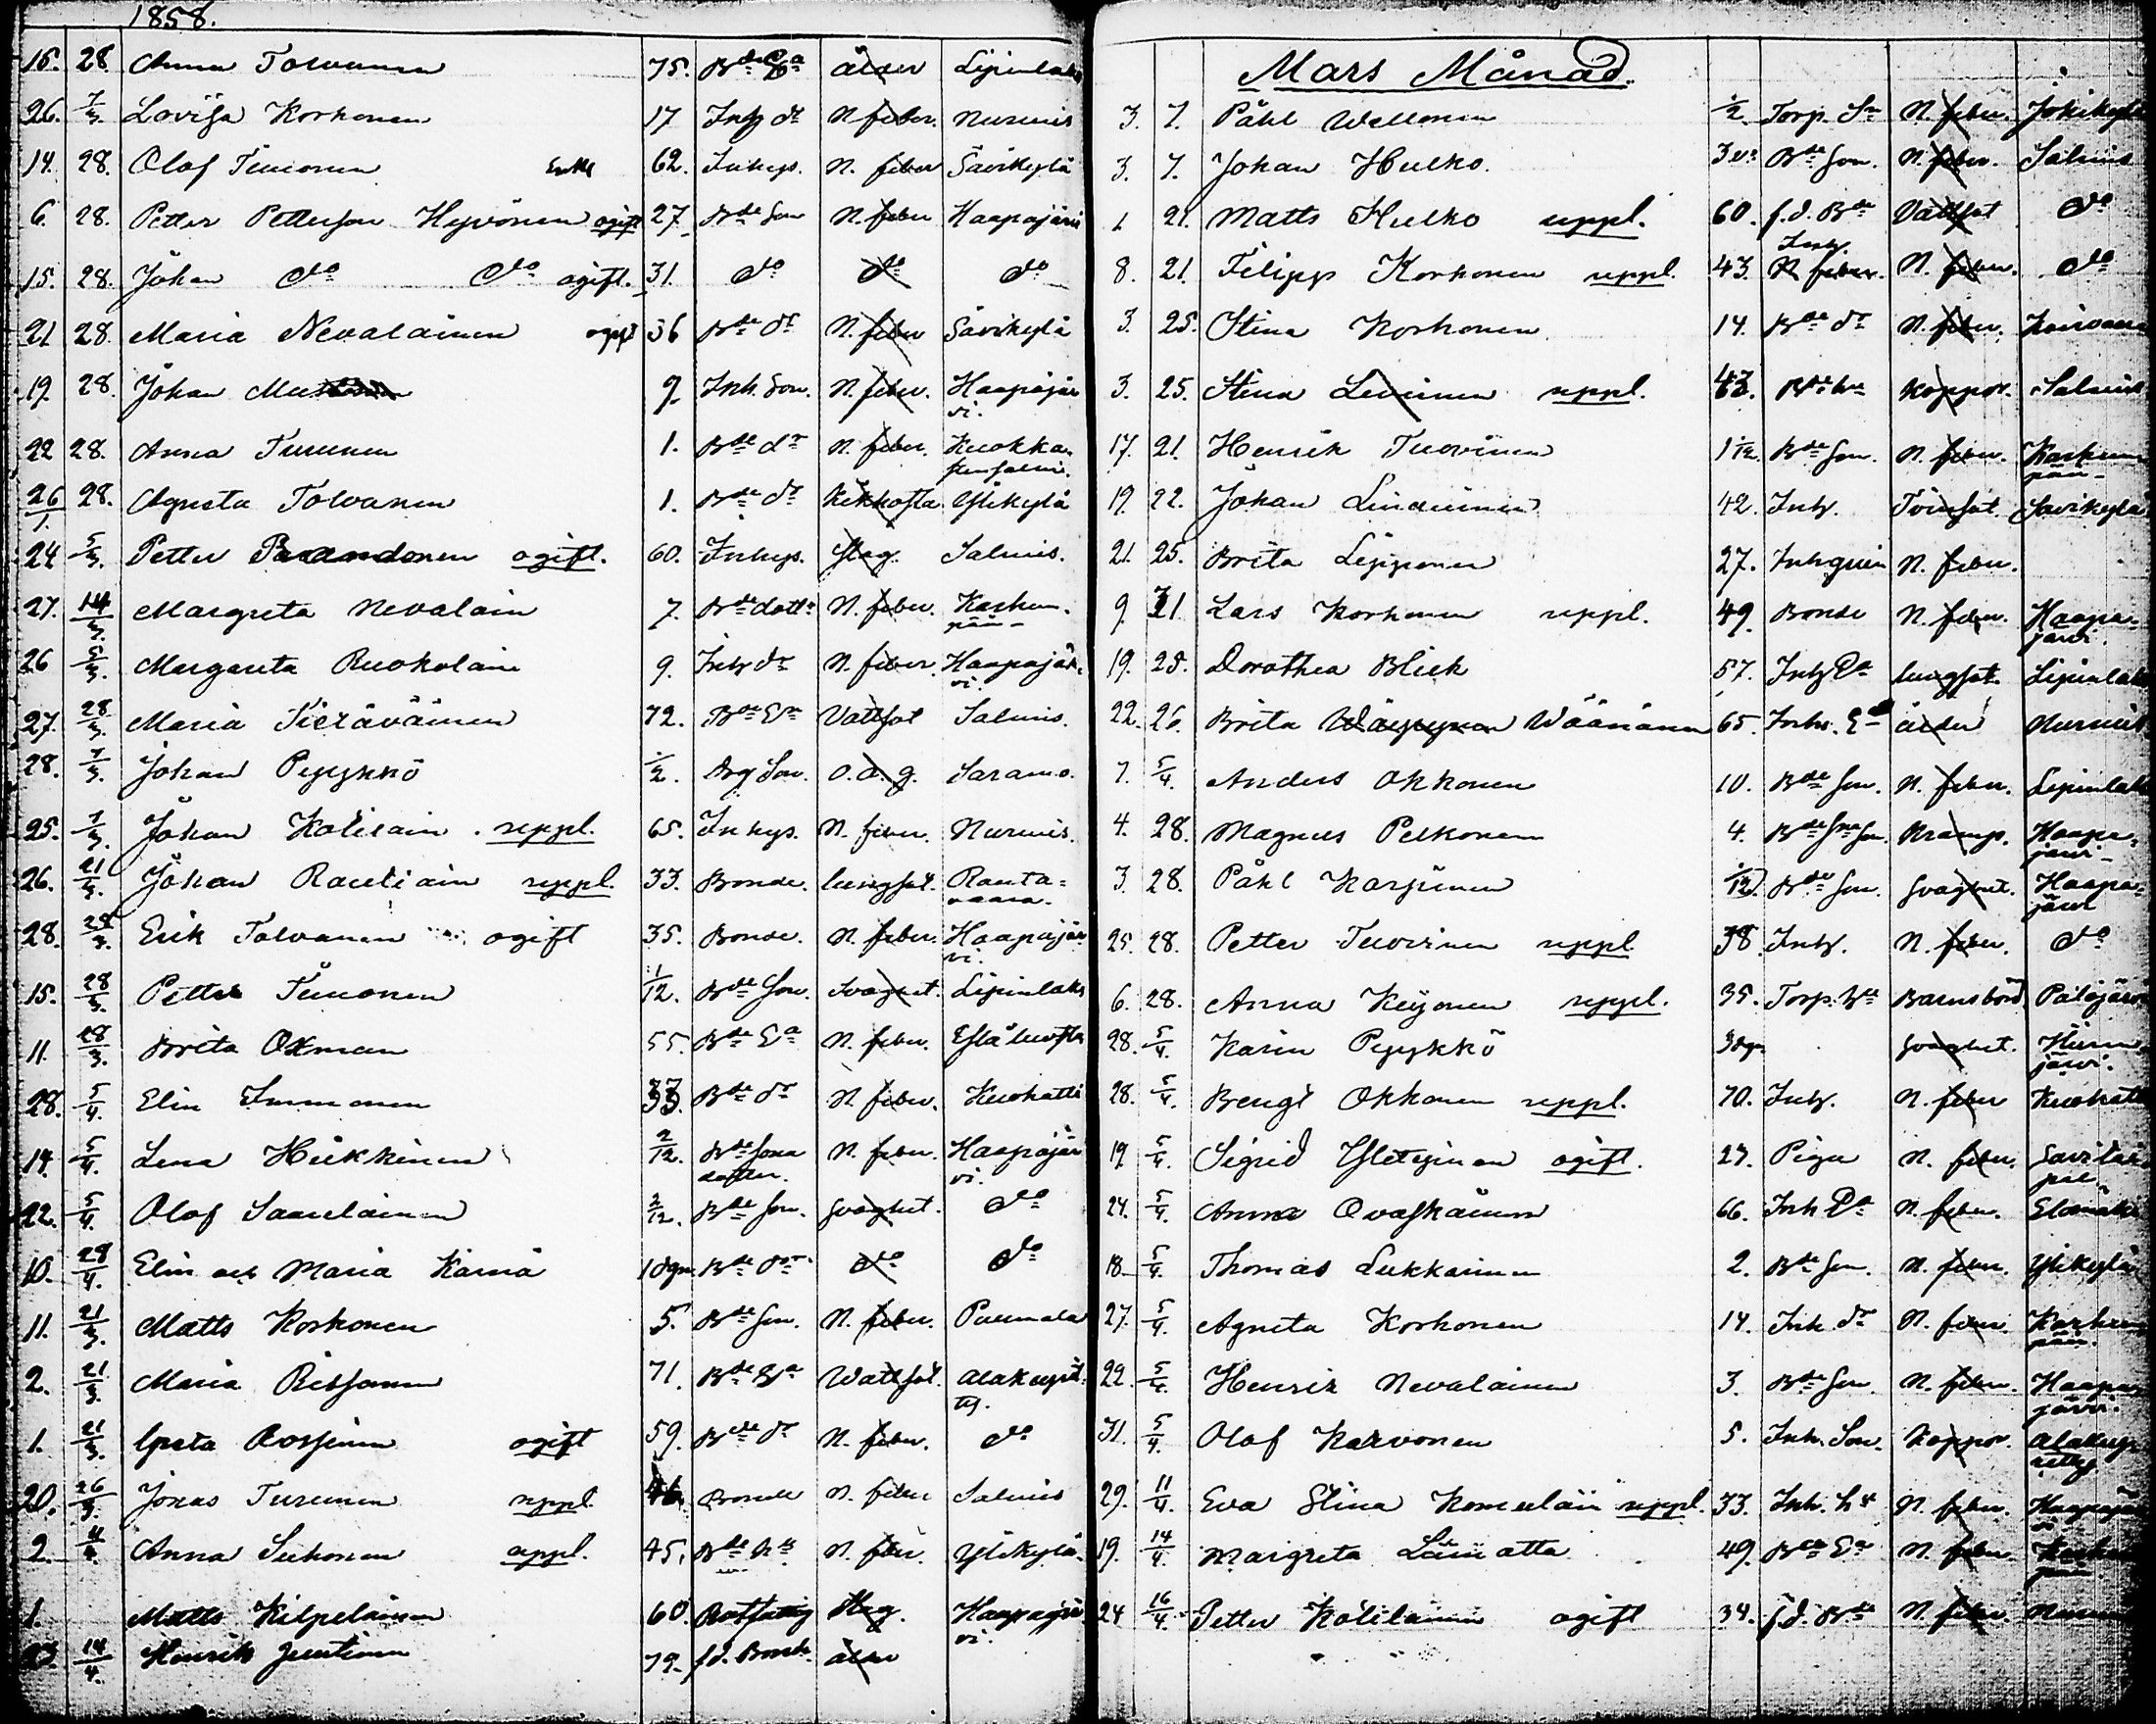 1858.
16. 28. Anna Tolvanen 75. Bde Ea ålder Lipinlaks
26. 7/3. Lovisa Korhonen 17 Inhs dr N. feber. Nurmis
14. 28. Olof Timonen Enkl 62. Inhys. N. feber Savikylä
6. 28. Petter Petterson Hyvönen ogift 27 Bde Son N. feber Haapajärvi
15. 28. Johan do do ogift. 31. do do do
21 28. Maria Nevalainen ogift 36 Bde dr N. feber Savikylä
19. 28. Johan 9 Inh. Son. N. feber. Haapajär
vi.
22 28. Anna Turunen 1. Bde dr N. feber. Kuokka
stensalmi.
26/1. 28. Agneta Tolvanen 1. Bde dr Kikhosta Ylikylä
24 5/3. Petter ogift. 60. Inhys. Slag. Salmis.
27. 14/3. Margreta Nevalain 7. Bde dottr N. feber. Karhun
pää-
26 5/3. Margareta Ruokolain 9. Inhs dr N. feber. Haapajär
vi.
27. 28/3. Maria Kieräväinen 72. Bde Ea Vattsot Salmis.
28. 7/3. Johan Pyykkö 1/2. Son. O. d. g. Saramo.
25. 7/3. Johan Kolilain. uppl. 65. Inhys. N. feber. Nurmis.
26. 21/3. Johan Rautiain uppl. 33. Bonde. lungsot. Rauta=
vaara.
28. 28/3. Erik Tolvanen ogift 35. Bonde. N. feber. Haapajär
vi.
15. 28/3. Petter Timonen 1/12. Bde Son. Svaghet. Lipinlaks
11. 28/3. Brita Oxman 55. Bde Ea N. feber.
28. 5/4. Elin Immonen 33. Bde dr N. feber. Kuohatti
14. 5/4. Lena Heikkinen 2/12. Bde Sona
dotter. N. feber. Haapajär
vi.
22. 5/4. Olof Saarelainen 2/12. Bde Son. Svaghet. do
10. 28/4. Elin och Maria Kärnä 1 dgn. Bde dr do do
11. 21/3. Matts Korhonen 5. Bde Son. N. feber. Puumala
2. 21/3. Maria Rissanen 71. Bde Ea Wattsot. Alakeyrit
ty.
1. 21/3. Greta Rossinen ogift 59. Bde dr N. feber. do
20. 26/3. Jonas Turunen uppl 46. Bonde N. feber Salmis
2. Anna Sikonen uppl. 45. Bde hu N. feber Ylikylä
1. Matts Kilpeläinen 60. Slag. Haapajär
vi.
14/4. Henrik Juntinen 79. f.d. Bonde ålder
Mars Månad.
3. 7. Påhl Wellonen 1/2 Torp. Sn N. feber. Jokikylä
3. 7. Johan Hulko. 3 v. Bde Son. N. feber. Salmis
1 21. Matts Hulko uppl. 60. f.d. Bde Vattsot do
8. 21. Filipp Korhonen uppl. 43. Inhs. N. feber. do
3. 25. Stina Korhonen 14. Bde dr N. feber.
3. 25. Stina Leinonen uppl. 43. Bde hu Koppor. Salmis
17. 21. Henrik Tuovinen 1 1/12. Bde Son. N. feber. Karhun
pää-
19. 22. Johan 42. Inhs. Tvinsot. Savikylä
21. 25. Brita Lipponen 27. Inhqvin N. feber.
9. 21. Lars Korhonen uppl. 49. Bonde N. feber. Haapa-
järvi.
19. 28. Dorothea Blick 57. Inhs Ea lungsot. Lipinlaks
22. 26. Brita Wäänänen 65. Inhs. Ea ålder Nurmis
7. 5/4. Anders Okkonen 10. Bde Son. N. feber. Lipinlaks
4. 28. Magnus Pelkonen 4. Bde Sna Sn. Kramp. Haapa-
järvi-
3. 28. Påhl Karjunen 1/12. Bde Son. Svaghet. Haapa=
järvi
25. 28. Petter Tuovinen uppl 38. Inhs. N. feber. do
6. 28. Anna Keijonen uppl. 35. Torp. hu Barnsbörd Palojärvi
28. 5/4. Karin Pyykkö 3 dgn Svaghet.
järvi.
28. 5/4. Bengt Okkonen uppl. 70. Inhs. N. feber Kuohatti
19 5/4. Sigrid Yletyinen ogift. 27. Piga N. feber.
24. 5/4. Anna Ovaskainen 66. Inh Ea N. feber.
18. 5/4. Thomas Lukkarinen 2. Bde Son. N. feber. Ylikylä
27. 5/4. Agneta Korhonen 14. Inh. dr N. feber. Karhun
pää.
22. 5/4. Henrik Nevalainen 3. Bde Son. N. feber. Haapa
järvi.
31. 5/4. Olof Karvonen 5. Inh. Son. Koppor. Alakeyr
itty
29. 11/4. Eva Stina Komulain uppl. 33. Inh. hu N. feber. Haapajär
vi
19. 14/4. Margreta 49. Bde Ea N. feber
24 16/4. Petter Kolilainen ogift 34. f.d. Bde N. feber